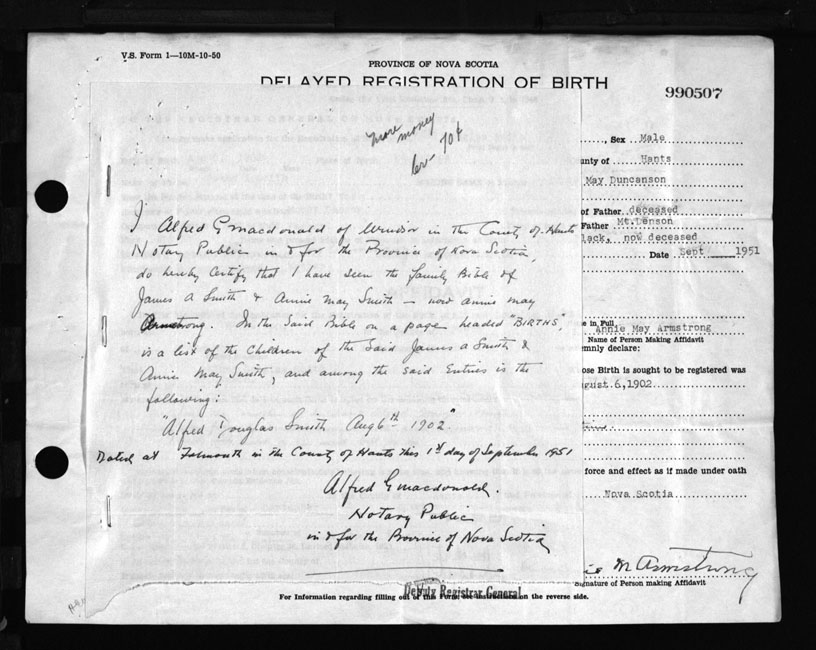 V.S. Form 1—10M-10-50
PROVINCE OF NOVA SCOTIA
DELAYED REGISTRATION OF BIRTH
990507
more money
70¢
Sex Male
unty of Hants
May Duncanson
of Father deceased
Father Mt. Denson
lack, now deceased
Date Sept 1951
I Alfred G Macdonald of Windsor in the County of Hants
Notary Public in & for the Province of Nova Scotia,
do hereby Certify that I have seen the family Bible of
James A Smith & Annie May Smith — now annie may
Armstrong. In the Said Bible on a page headed "BIRTHS",
is a list of the Children of the Said James A Smith &
Annie May Smith, and among the said Entries is the
following:
"Alfred Douglas Smith Aug 6th 1902."
Dated at Falmouth in the County of Hants this 1st day of September 1951
Alfred G Macdonald.
Notary Public
in & for the Province of Nova Scotia
e in Full
Annie May Armstrong
Name of Person Making Affidavit
emnly declare:
ose Birth is sought to be registered was
ugust 6, 1902
force and effect as if made under oath
Nova Scotia
ie M Armstrong
Signature of Person making Affidavit
Deputy Registrar General
For Information regarding filling out of this Form, see instructions on the reverse side.